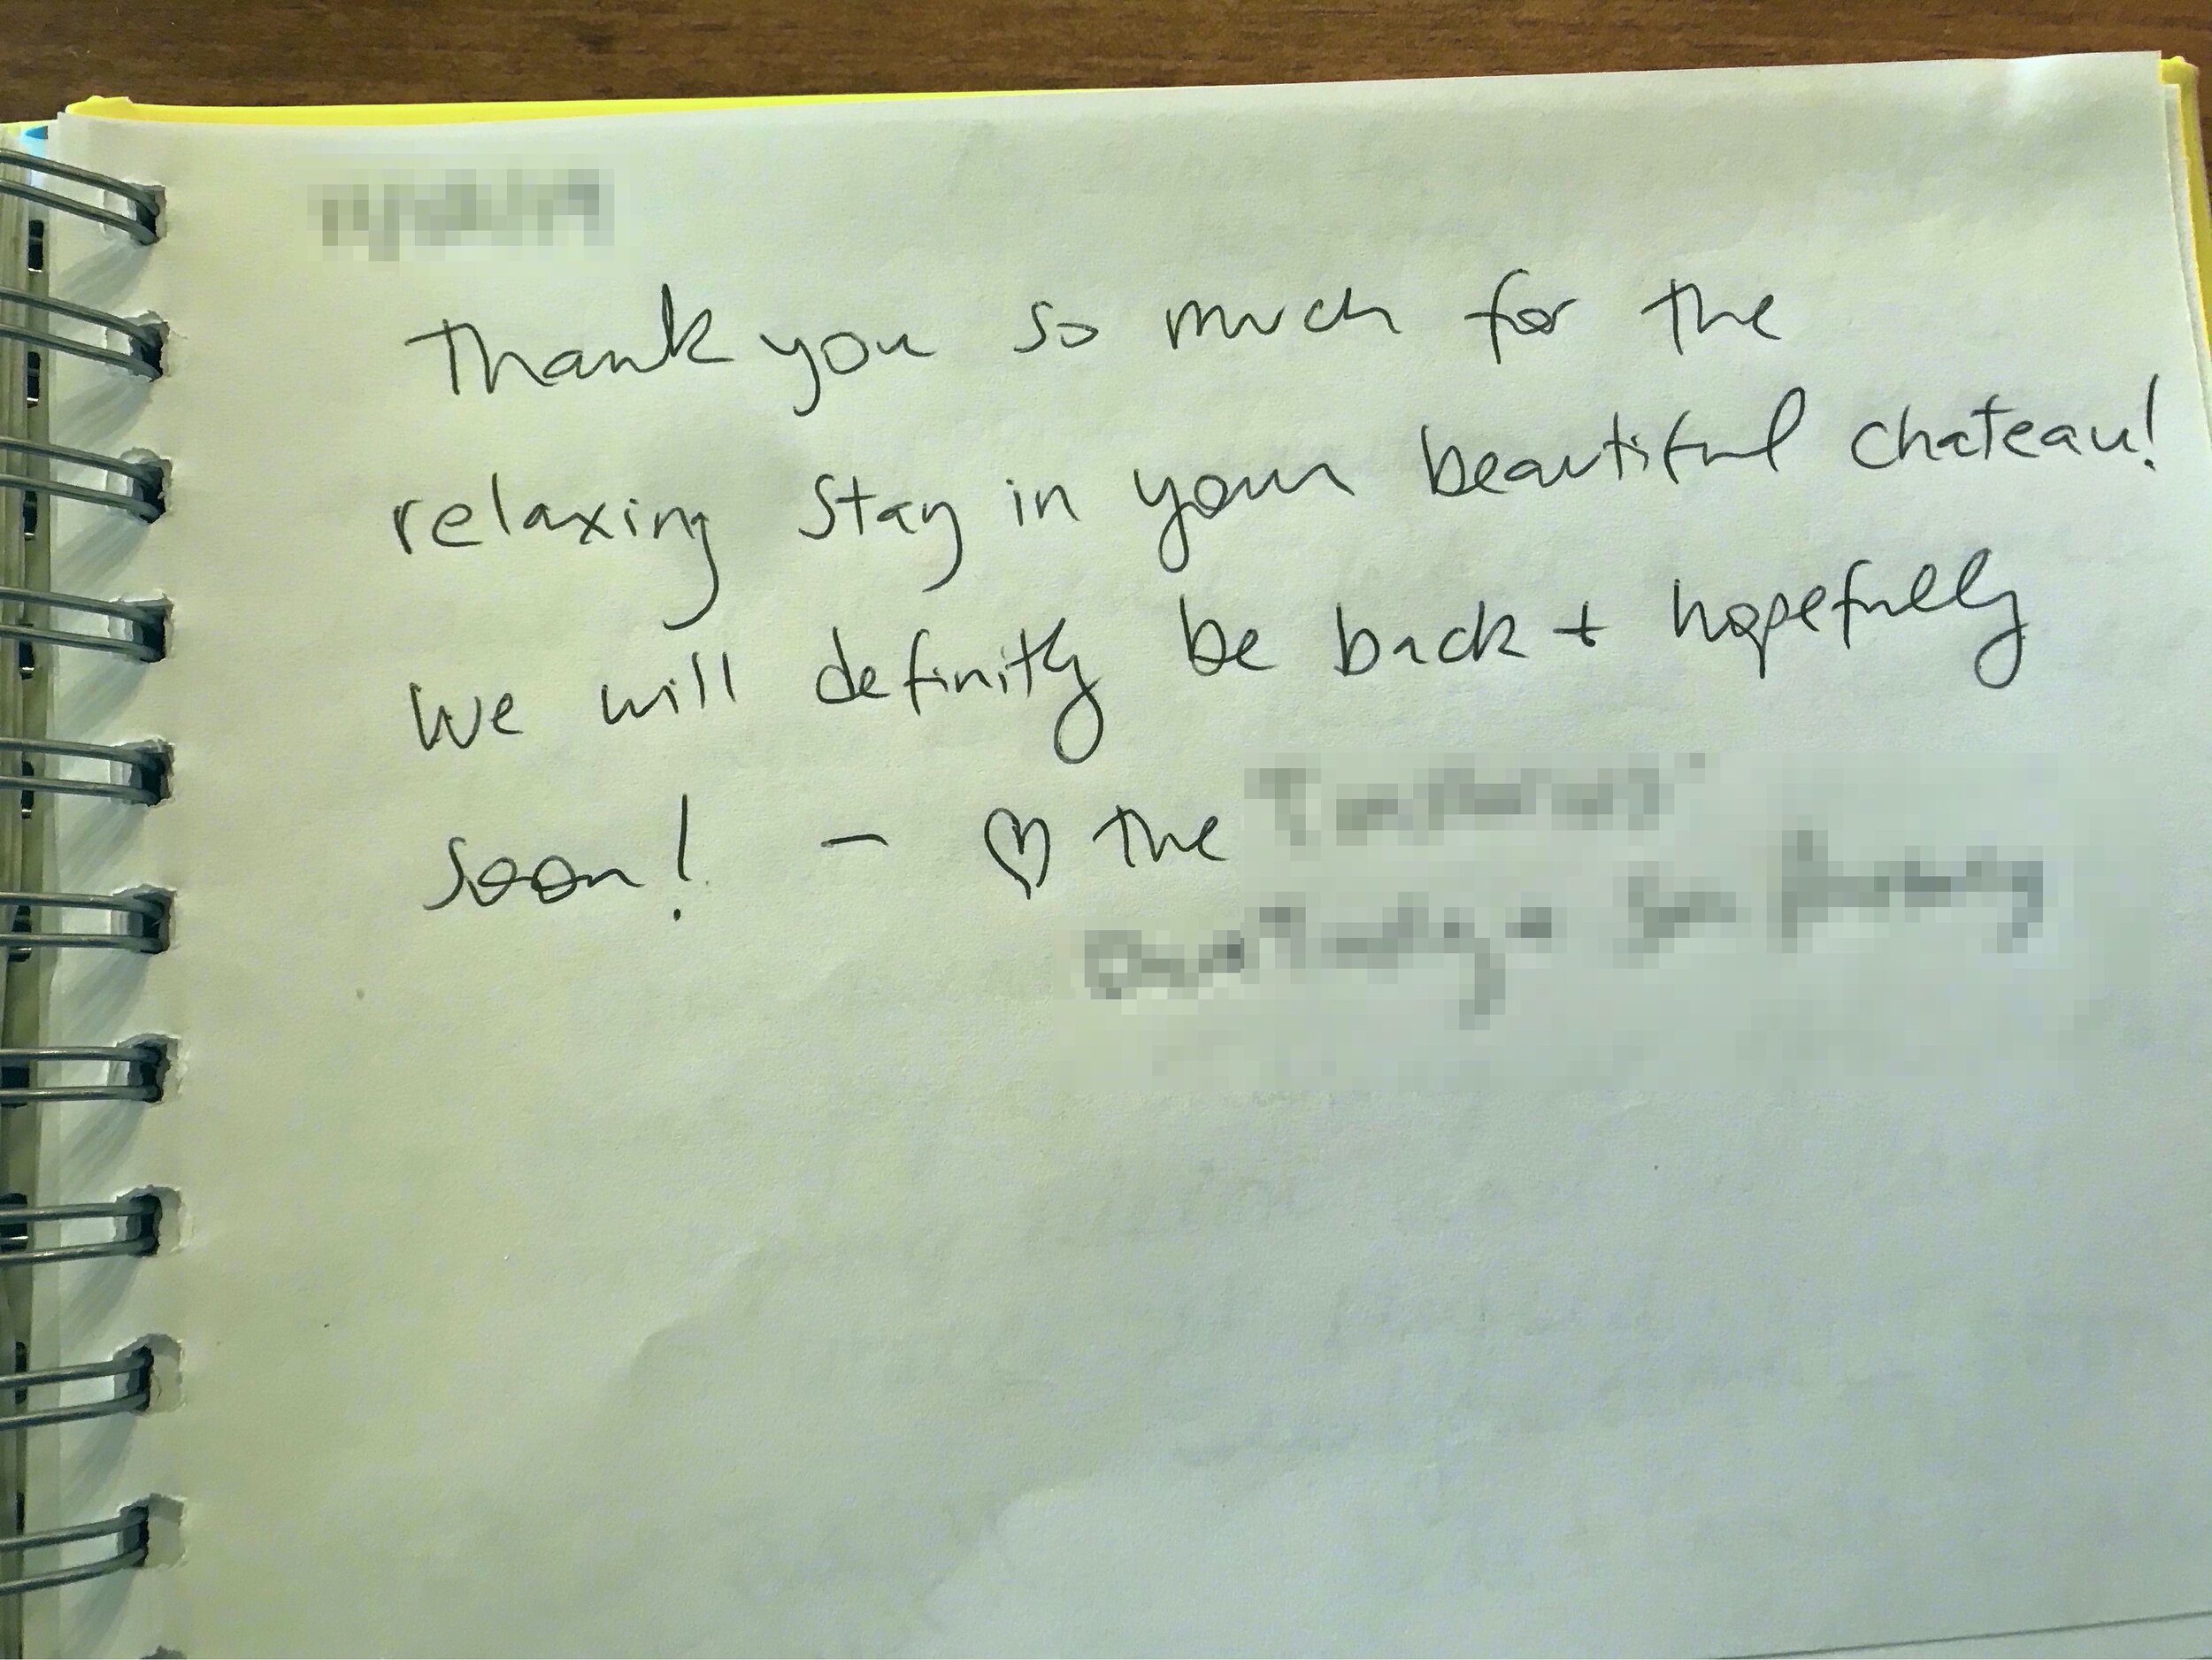 Thank you so much for the
relaxing stay in your beautiful chateau!
We will definitly be back + hopefully
soon! – ♡ the